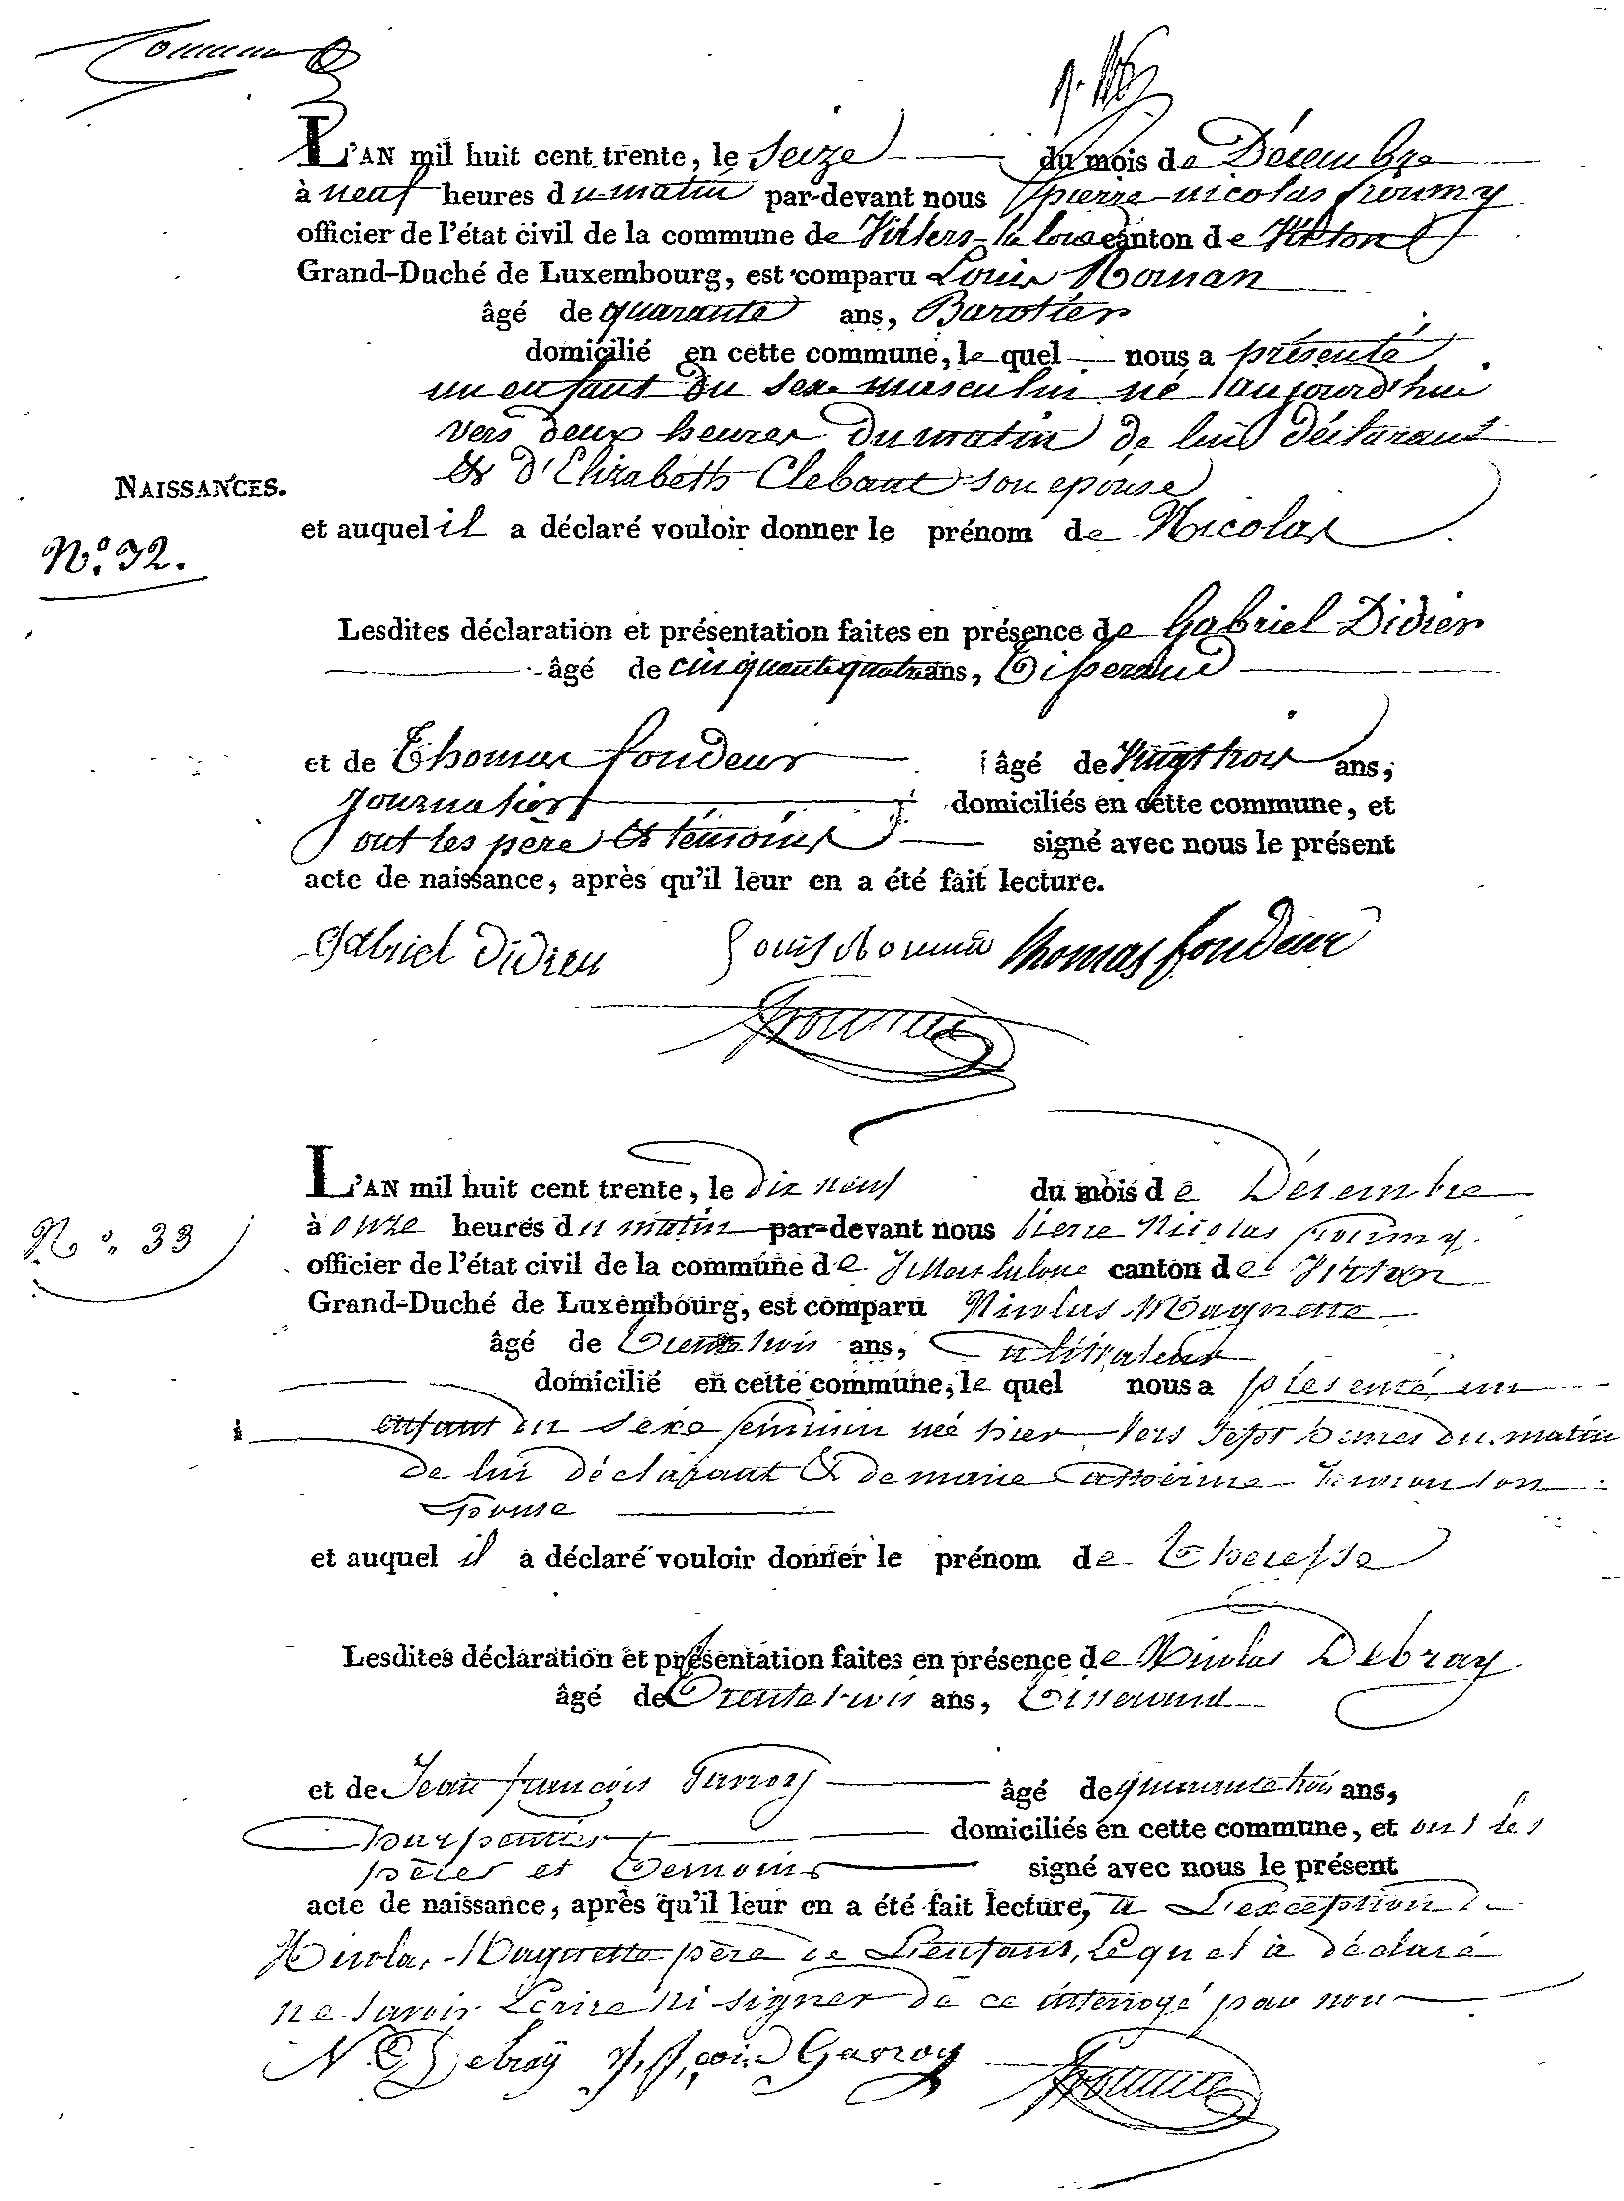 L'AN mil huit cent trente, le Seize du mois de Décembre
à neuf heures du matin par-devant nous pierre nicolas
officier de l'état civil de la commune de Villers la loue canton de Virton
Grand-Duché de Luxembourg, est comparu Louis Noman
âgé de quarante ans,
domicilié en cette commune, le quel nous a présenté
un enfant du sexe masculin né aujourd'hui
vers deux heures du matin de lui déclarant
et d'Elizabeth son épouse
NAISSANCES.
et auquel il a déclaré vouloir donner le prénom de Nicolas
N.º 32.
Lesdites déclaration et présentation faites en présence de Gabriel Didier
âgé de cinquante quatre ans, Tisserand
et de Thomas fondeur âgé de Vingt trois ans,
journalier domiciliés en cette commune, et
ont les père et témoins signé avec nous le présent
acte de naissance, après qu'il leur en a été fait lecture.
Gabriel Didier Louis Thomas fondeur
L'AN mil huit cent trente, le dix neuf du mois de Décembre
N.º 33
à onze heures du matin par-devant nous Pierre Nicolas
officier de l'état civil de la commune de Villers la loue canton de Virton
Grand-Duché de Luxembourg, est comparu Nicolas Magnette
âgé de Trente trois ans, Cultivateur
domicilié en cette commune, le quel nous a présenté un
enfant du sexe féminin née hier vers sept heures du matin
de lui déclarant et de marie Catherine son
Epouse
et auquel il a déclaré vouloir donner le prénom de Theresse
Lesdites déclaration et présentation faites en présence de Nicolas Debray
âgé de Trente trois ans, Tisserand
et de Jean françois Garroy âgé de quarante trois ans,
Charpentier domiciliés en cette commune, et ont les
pères et Temoins signé avec nous le présent
acte de naissance, après qu'il leur en a été fait lecture, a L'exception de
Nicolas Magnette père de L'enfant, Lequel à déclaré
ne savoir Ecrire ni signer de ce interrogé par nous
N Debray Garroy